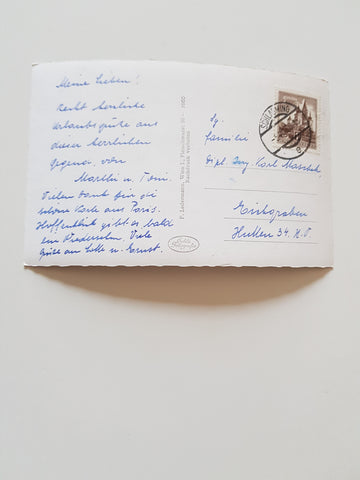 Meine Lieben!
Recht herzliche
Urlaubsgrüße aus
dieser herrlichen
Gegend, von
Marthi u. Toni.
Vielen Dank für die
schöne Karte aus Paris.
Hoffentlich gibt es bald
ein Wiedersehen. Viele
Grüße an Lotte u. Ernst.
P. Ledermann, Wien I, Fleischmarkt 20 - 1960
Nachdruck verboten
SCHLADMING
Familie
Dipl. Ing. Karl
Hütten 34. N.Ö.